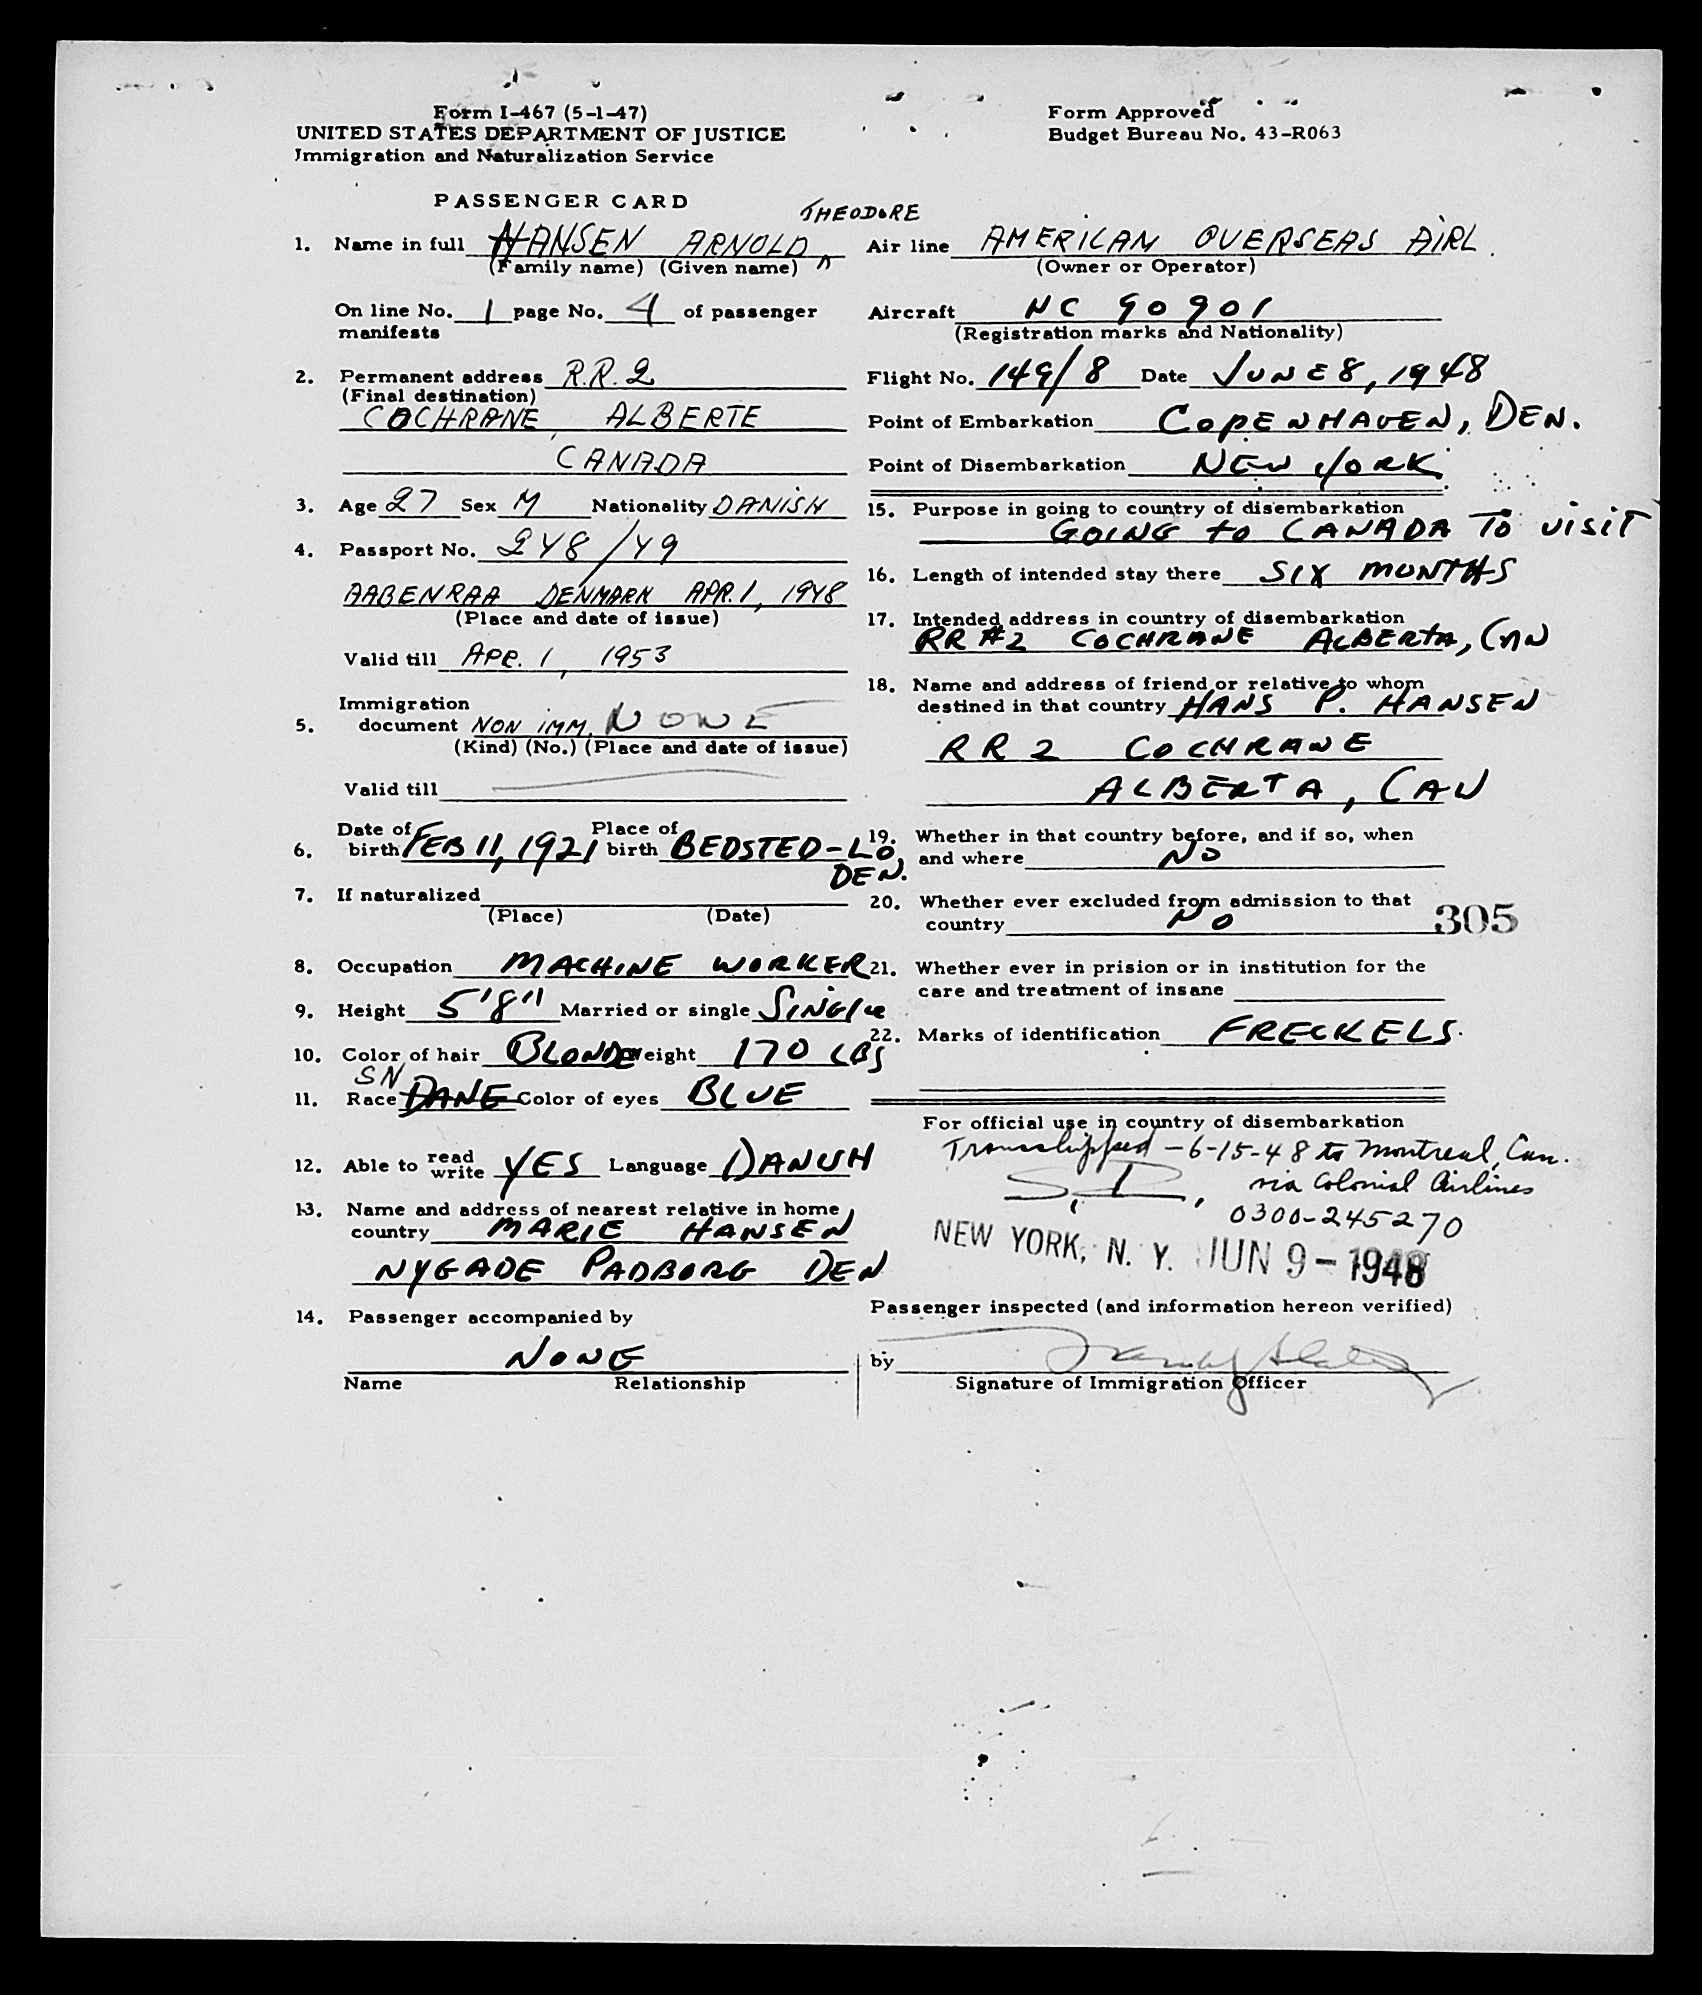 Form I-467 (5-1-47)
UNITED STATES DEPARTMENT OF JUSTICE
Immigration and Naturalization Service
Form Approved
Budget Bureau No. 43-R063
PASSENGER CARD
THEODORE
1. Name in full HANSEN ARNOLD ^
(Family name) (Given name)
On line No. 1 page No. 4 of passenger
manifests
2. Permanent address R.R. 2
(Final destination)
COCHRANE, ALBERTE
CANADA
3. Age 27 Sex M Nationality DANISH
4. Passport No. 248/49
AABENRAA DENMARK APR. 1, 1948
(Place and date of issue)
Valid till APR. 1, 1953
Immigration
5. document NON IMM. NONE
(Kind) (No.) (Place and date of issue)
Valid till
Date of Place of
6. birth FEB 11, 1921 birth BEDSTED-LO,
DEN.
7. If naturalized
(Place) (Date)
8. Occupation MACHINE WORKER
9. Height 5'8" Married or single SINGLE
10. Color of hair BLONDE Weight 170 LBS
SN
11. Race DANE Color of eyes BLUE
12. Able to read write YES Language DANISH
13. Name and address of nearest relative in home
country MARIE HANSEN
NYGADE PADBORG DEN
14. Passenger accompanied by
NONE
Name Relationship
Air line AMERICAN OVERSEAS AIRL.
(Owner or Operator)
Aircraft NC 90901
(Registration marks and Nationality)
Flight No. 149/8 Date JUNE 8, 1948
Point of Embarkation COPENHAGEN, DEN.
Point of Disembarkation NEW YORK
15. Purpose in going to country of disembarkation
GOING TO CANADA TO VISIT
16. Length of intended stay there SIX MONTHS
17. Intended address in country of disembarkation
RR #2 COCHRANE ALBERTA, CAN
18. Name and address of friend or relative to whom
destined in that country HANS P. HANSEN
RR 2 COCHRANE
ALBERTA, CAN
19. Whether in that country before, and if so, when
and where NO
20. Whether ever excluded from admission to that
country NO
305
21. Whether ever in prision or in institution for the
care and treatment of insane
22. Marks of identification FRECKELS.
For official use in country of disembarkation
Transshipped -6-15-48 to Montreal, Can.
via Colonial Airlines
0300-245270
NEW YORK, N. Y. JUN 9 - 1948
Passenger inspected (and information hereon verified)
by
Signature of Immigration Officer